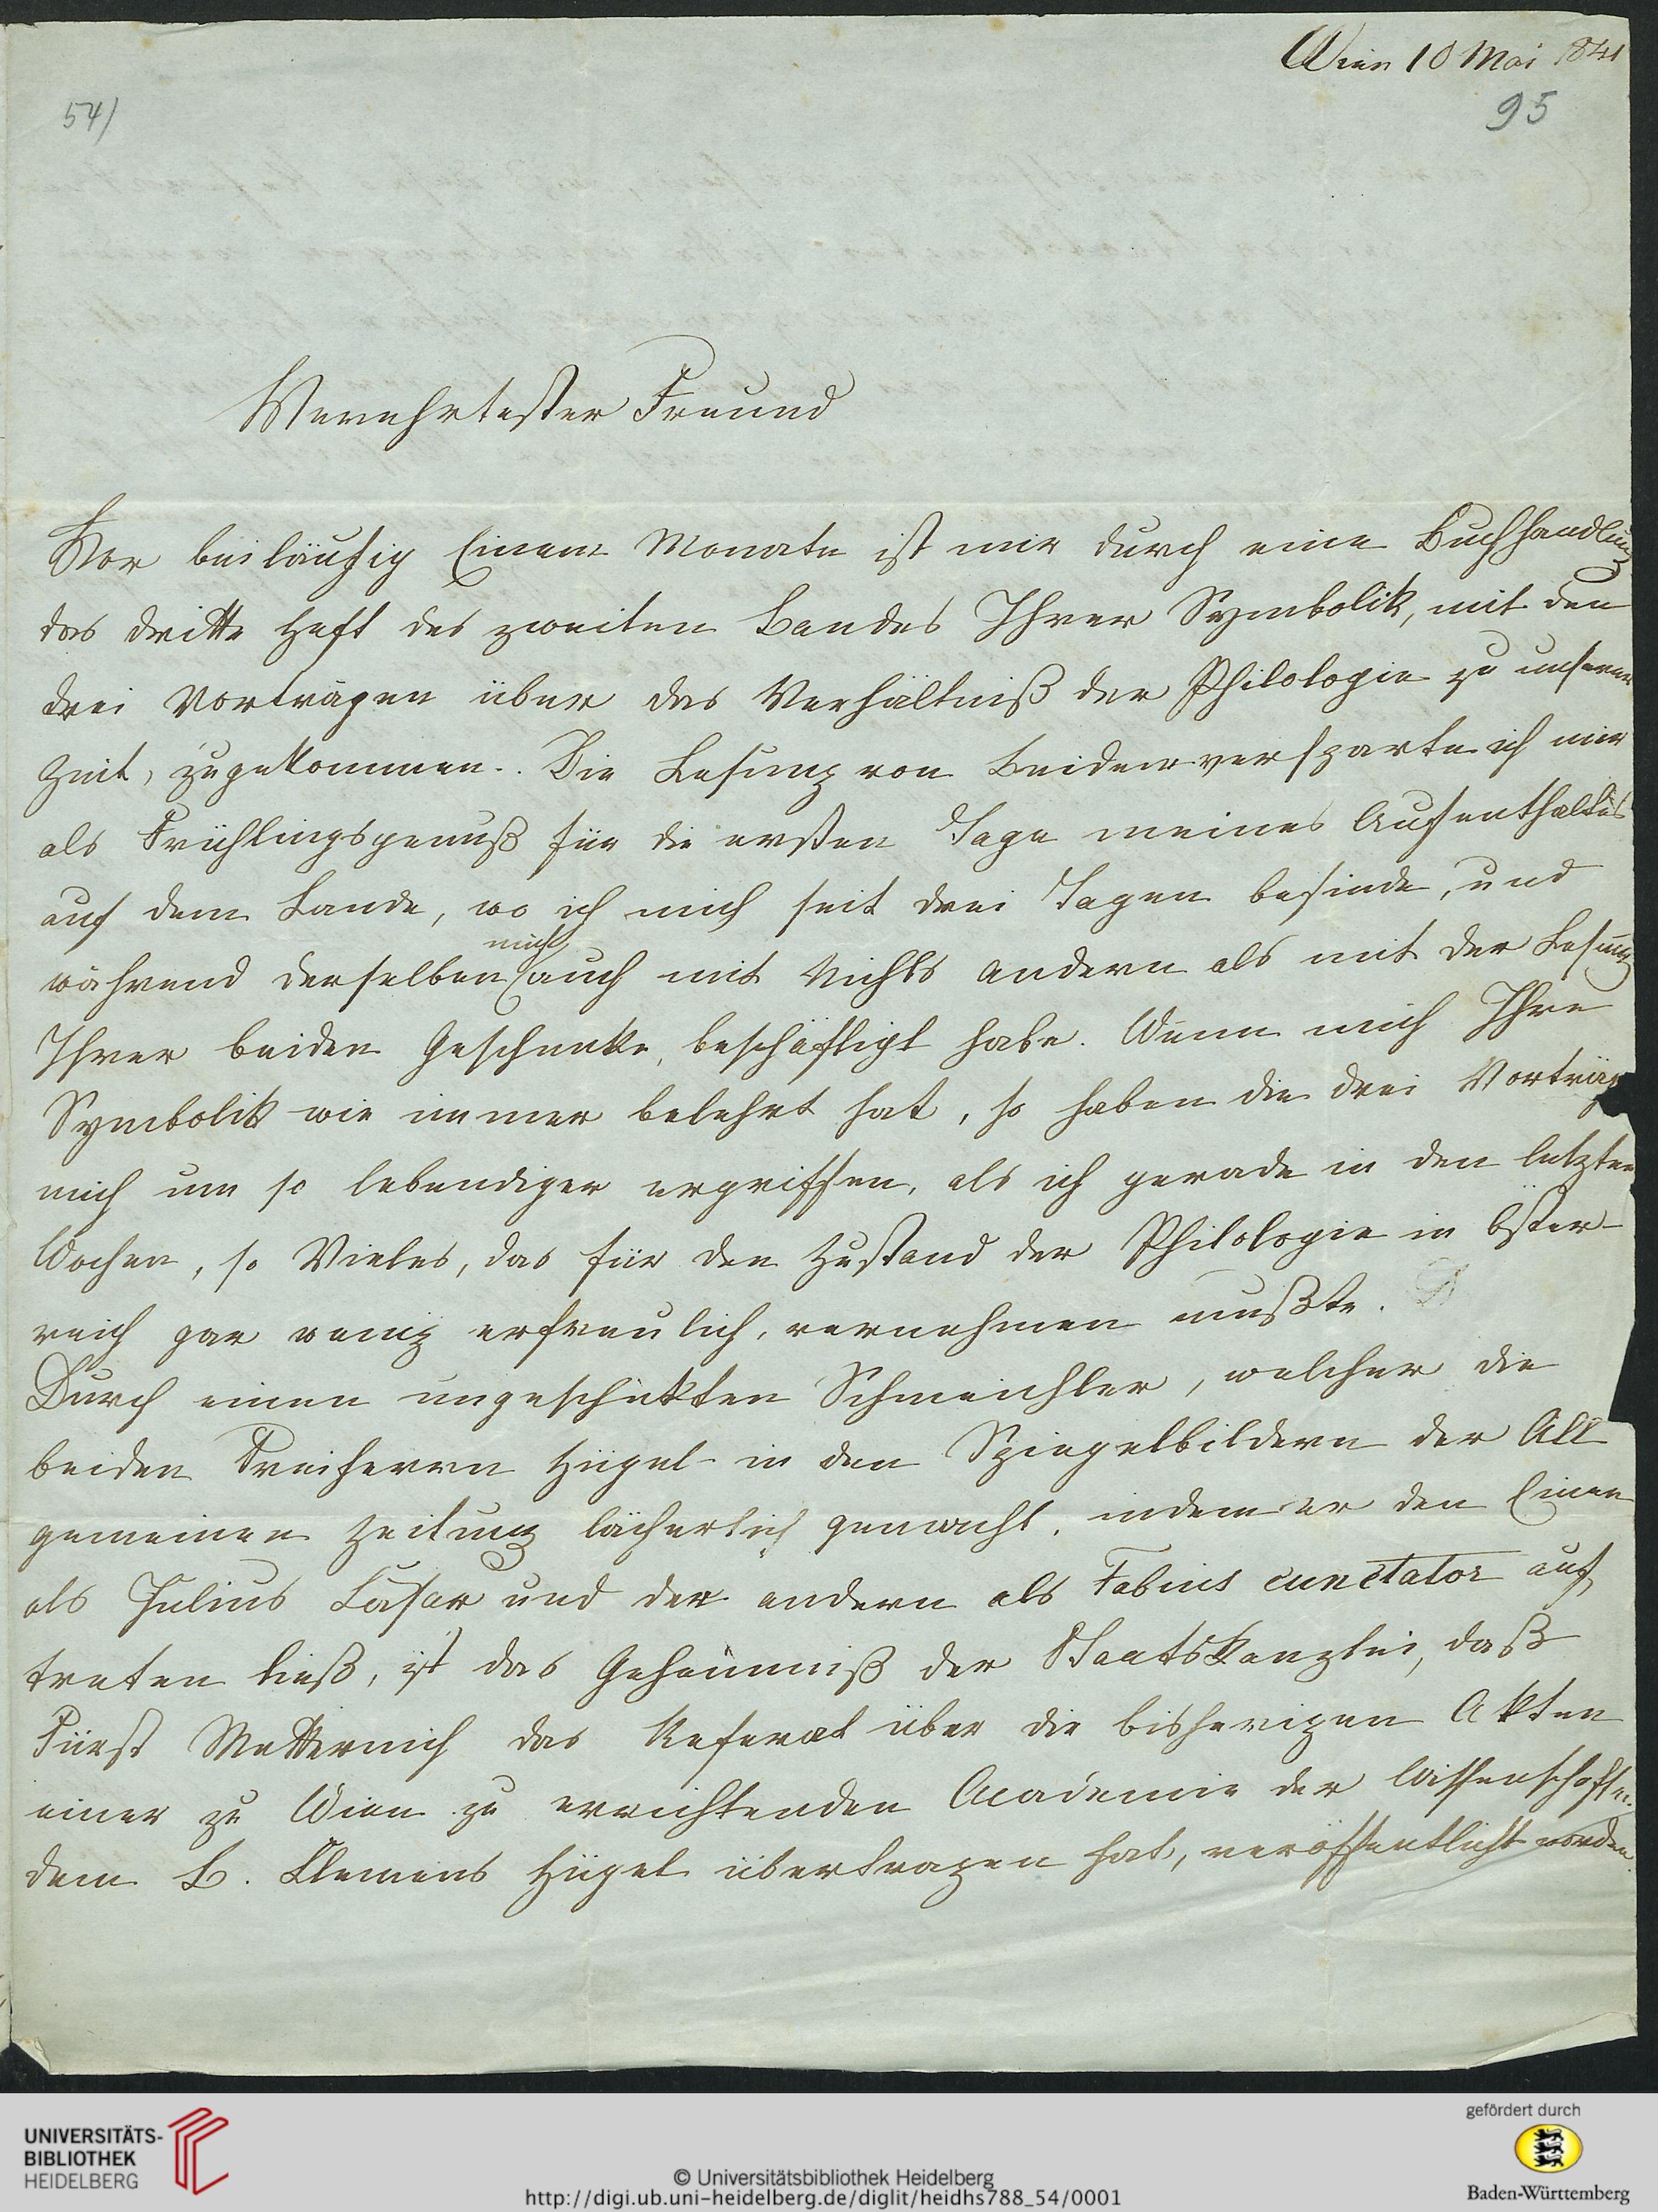 Wien 10 Mai 1841
54)
95
Verehrtester Freund
Vor beiläufig Einem Monate ist mir durch eine Buchhandlung
das dritte Heft des zweiten Bandes Ihrer Symbolik, mit den
drei Vorträgen über das Verhältniß der Philologie zu unserer
Zeit, zugekommen. Die Lesung von Beiden versparte ich mir
als Frühlingsgenuß für die ersten Tage meines Aufenthaltes
auf dem Lande, wo ich mich seit drei Tagen befinde, und
mich
während derselben auch mit Nichts andern als mit der Lesung
Ihrer beiden Geschenke, beschäftigt habe. Wenn mich Ihre
Symbolik wie immer belehrt hat, so haben die drei Vorträge
mich um so lebendiger ergriffen, als ich gerade in den letzten
Wochen, so Vieles, das für den Zustand der Philologie in Öster-
reich gar wenig erfreulich, vernehmen mußte.
Durch einen ungeschickten Schmeichler, welcher die
beiden Freiherrn Hügel in den Spiegelbildern der All
gemeinen Zeitung lächerlich gemacht, indem er den Einen
als Julius Cäsar und den andern als Fabius cunctator auf
treten ließ, ist das Geheimniß der Staatskanzlei, daß
Fürst Metternich das Referat über die bisherigen Akten
einer zu Wien zu errichtenden Academie der Wissenschaften
dem B. Clemens Hügel übertragen hat, veröffentlicht worden.
UNIVERSITÄTS-
BIBLIOTHEK
HEIDELBERG
© Universitätsbibliothek Heidelberg
http://digi.ub.uni-heidelberg.de/diglit/heidhs788_54/0001
gefördert durch
Baden-Württemberg